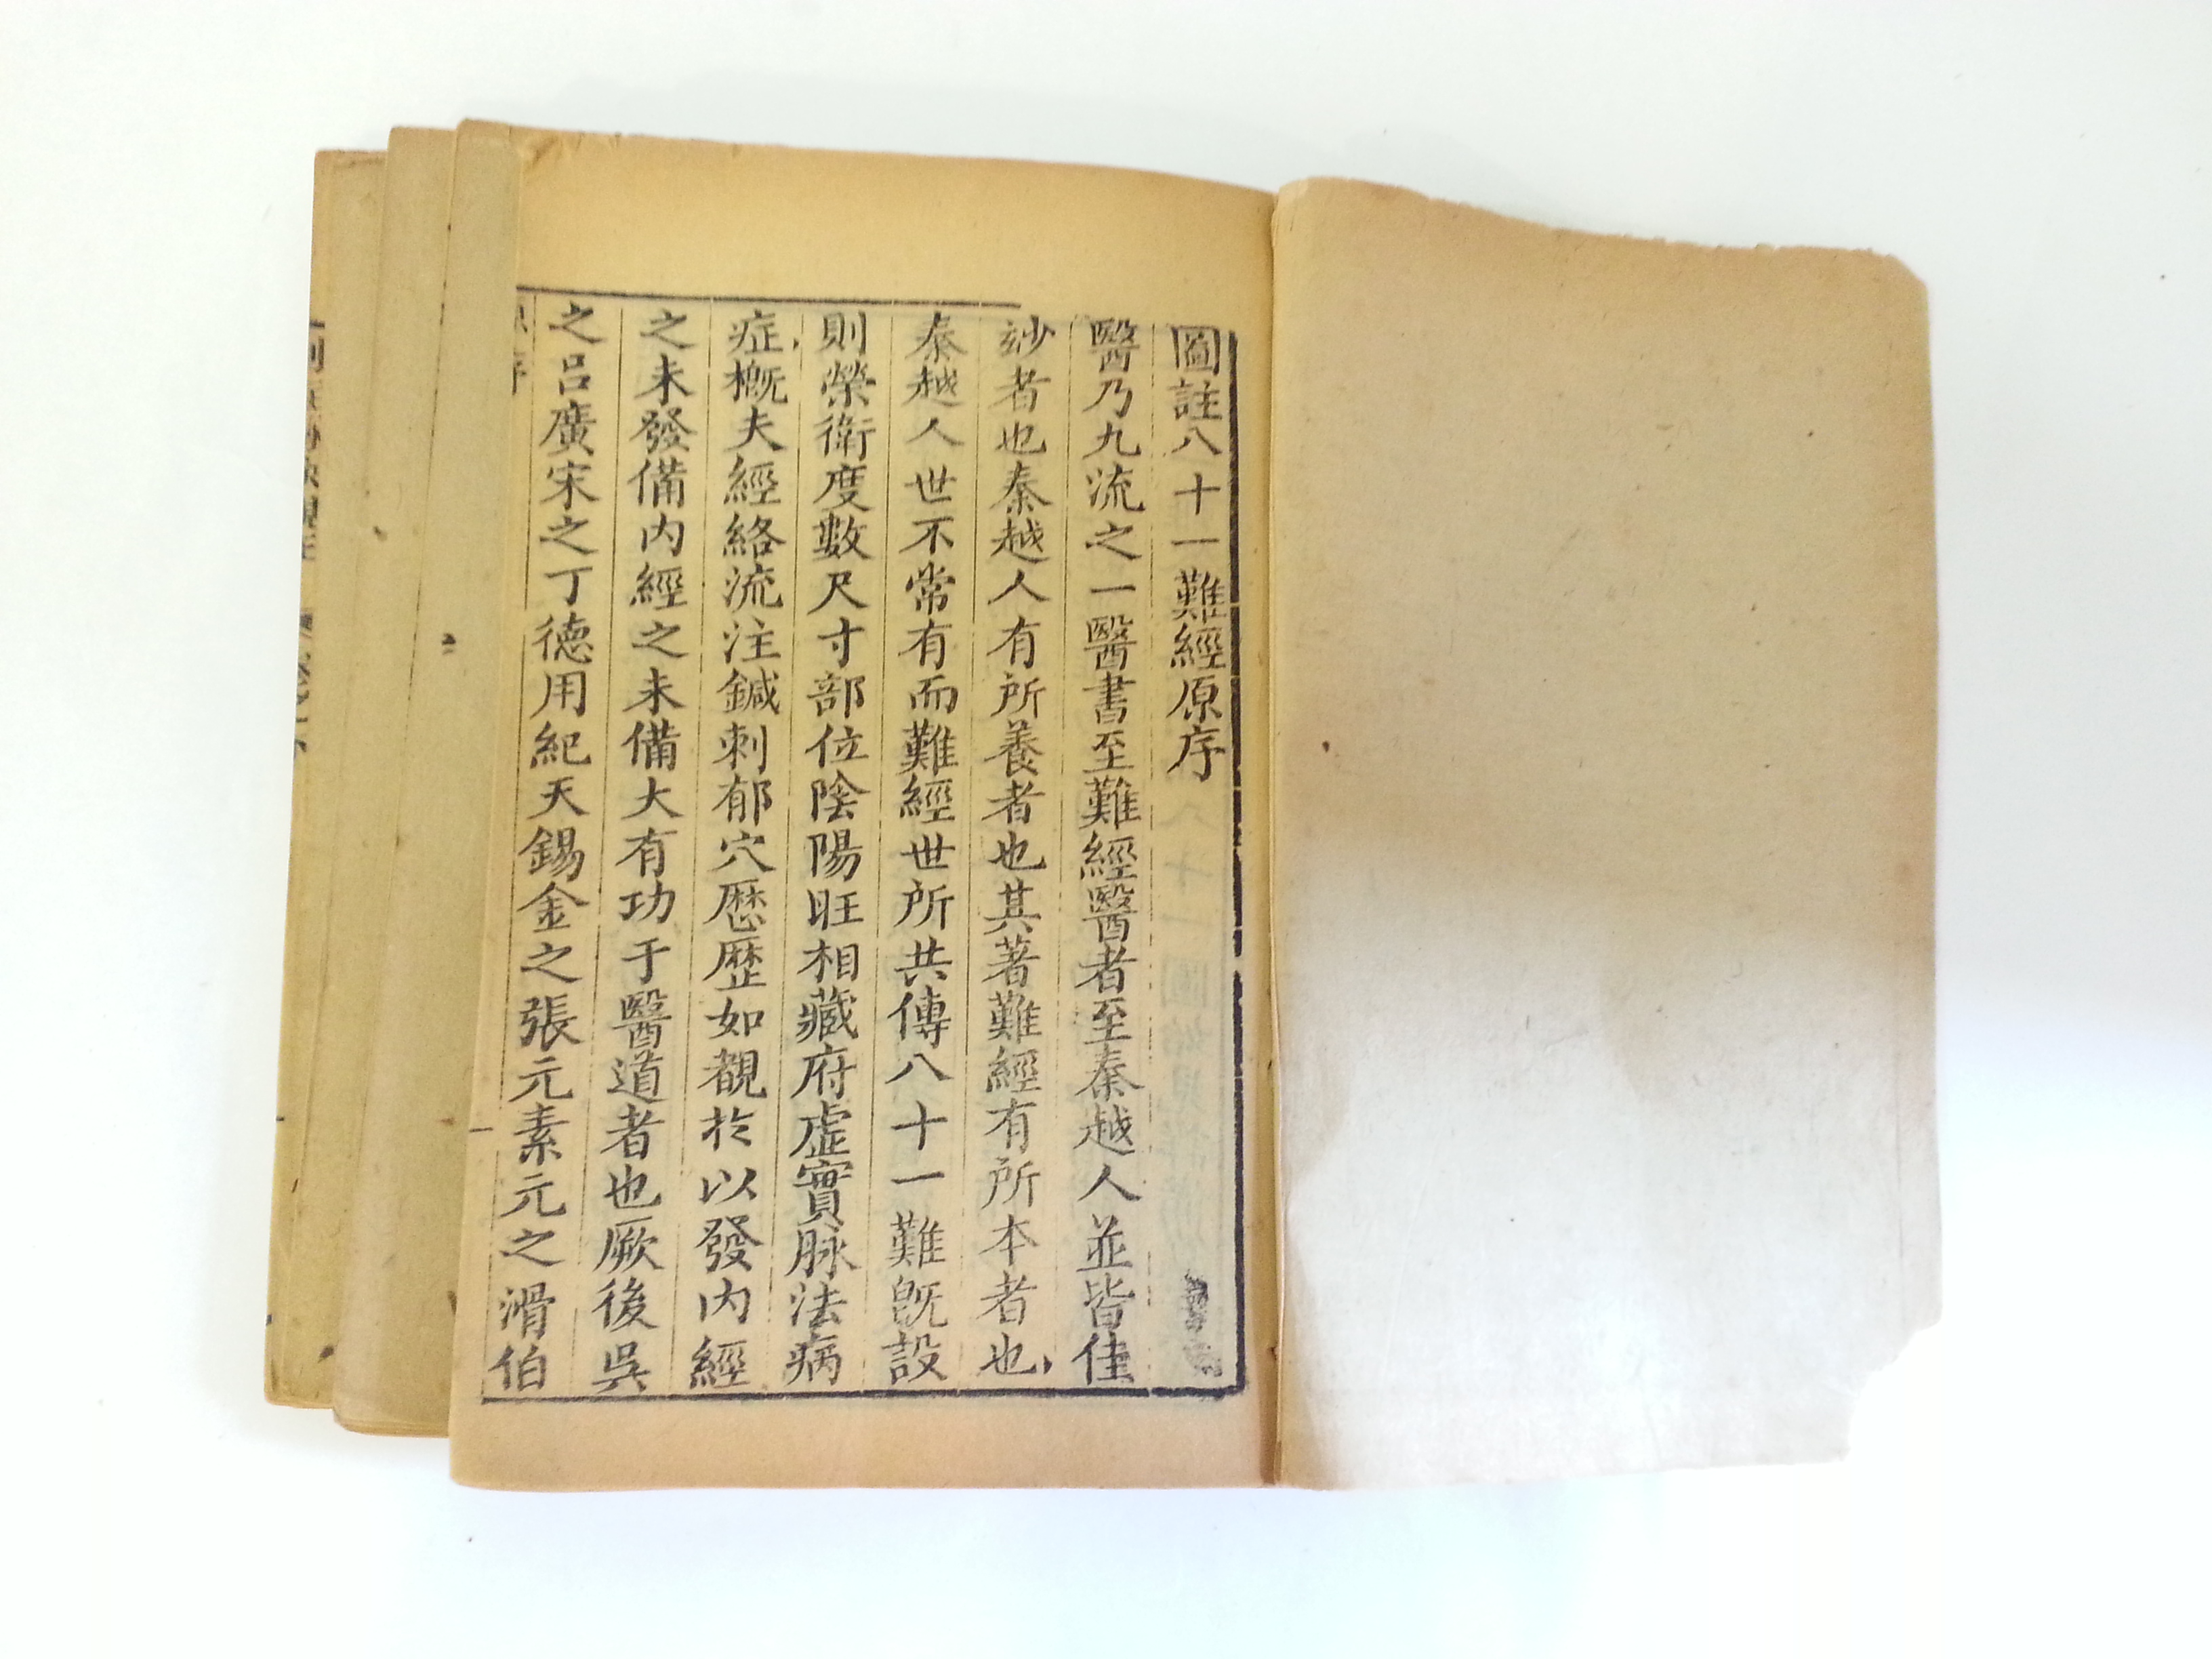 圖註八十一難經原序
醫乃九流之一醫書至難經醫者至秦越人並皆佳
玅者也秦越人有所養者也其著難經有所本者也
秦越人世不常有而難經世所共傳八十一難旣設
則榮衛度數尺寸部位陰陽旺相藏府虛實脉法病
症槪夫經絡流注鍼刺郁穴歷歷如覩於以發内經
之未發備内經之未備大有功于醫道者也厥後吳
之呂廣宋之丁德用紀天錫金之張元素元之滑伯